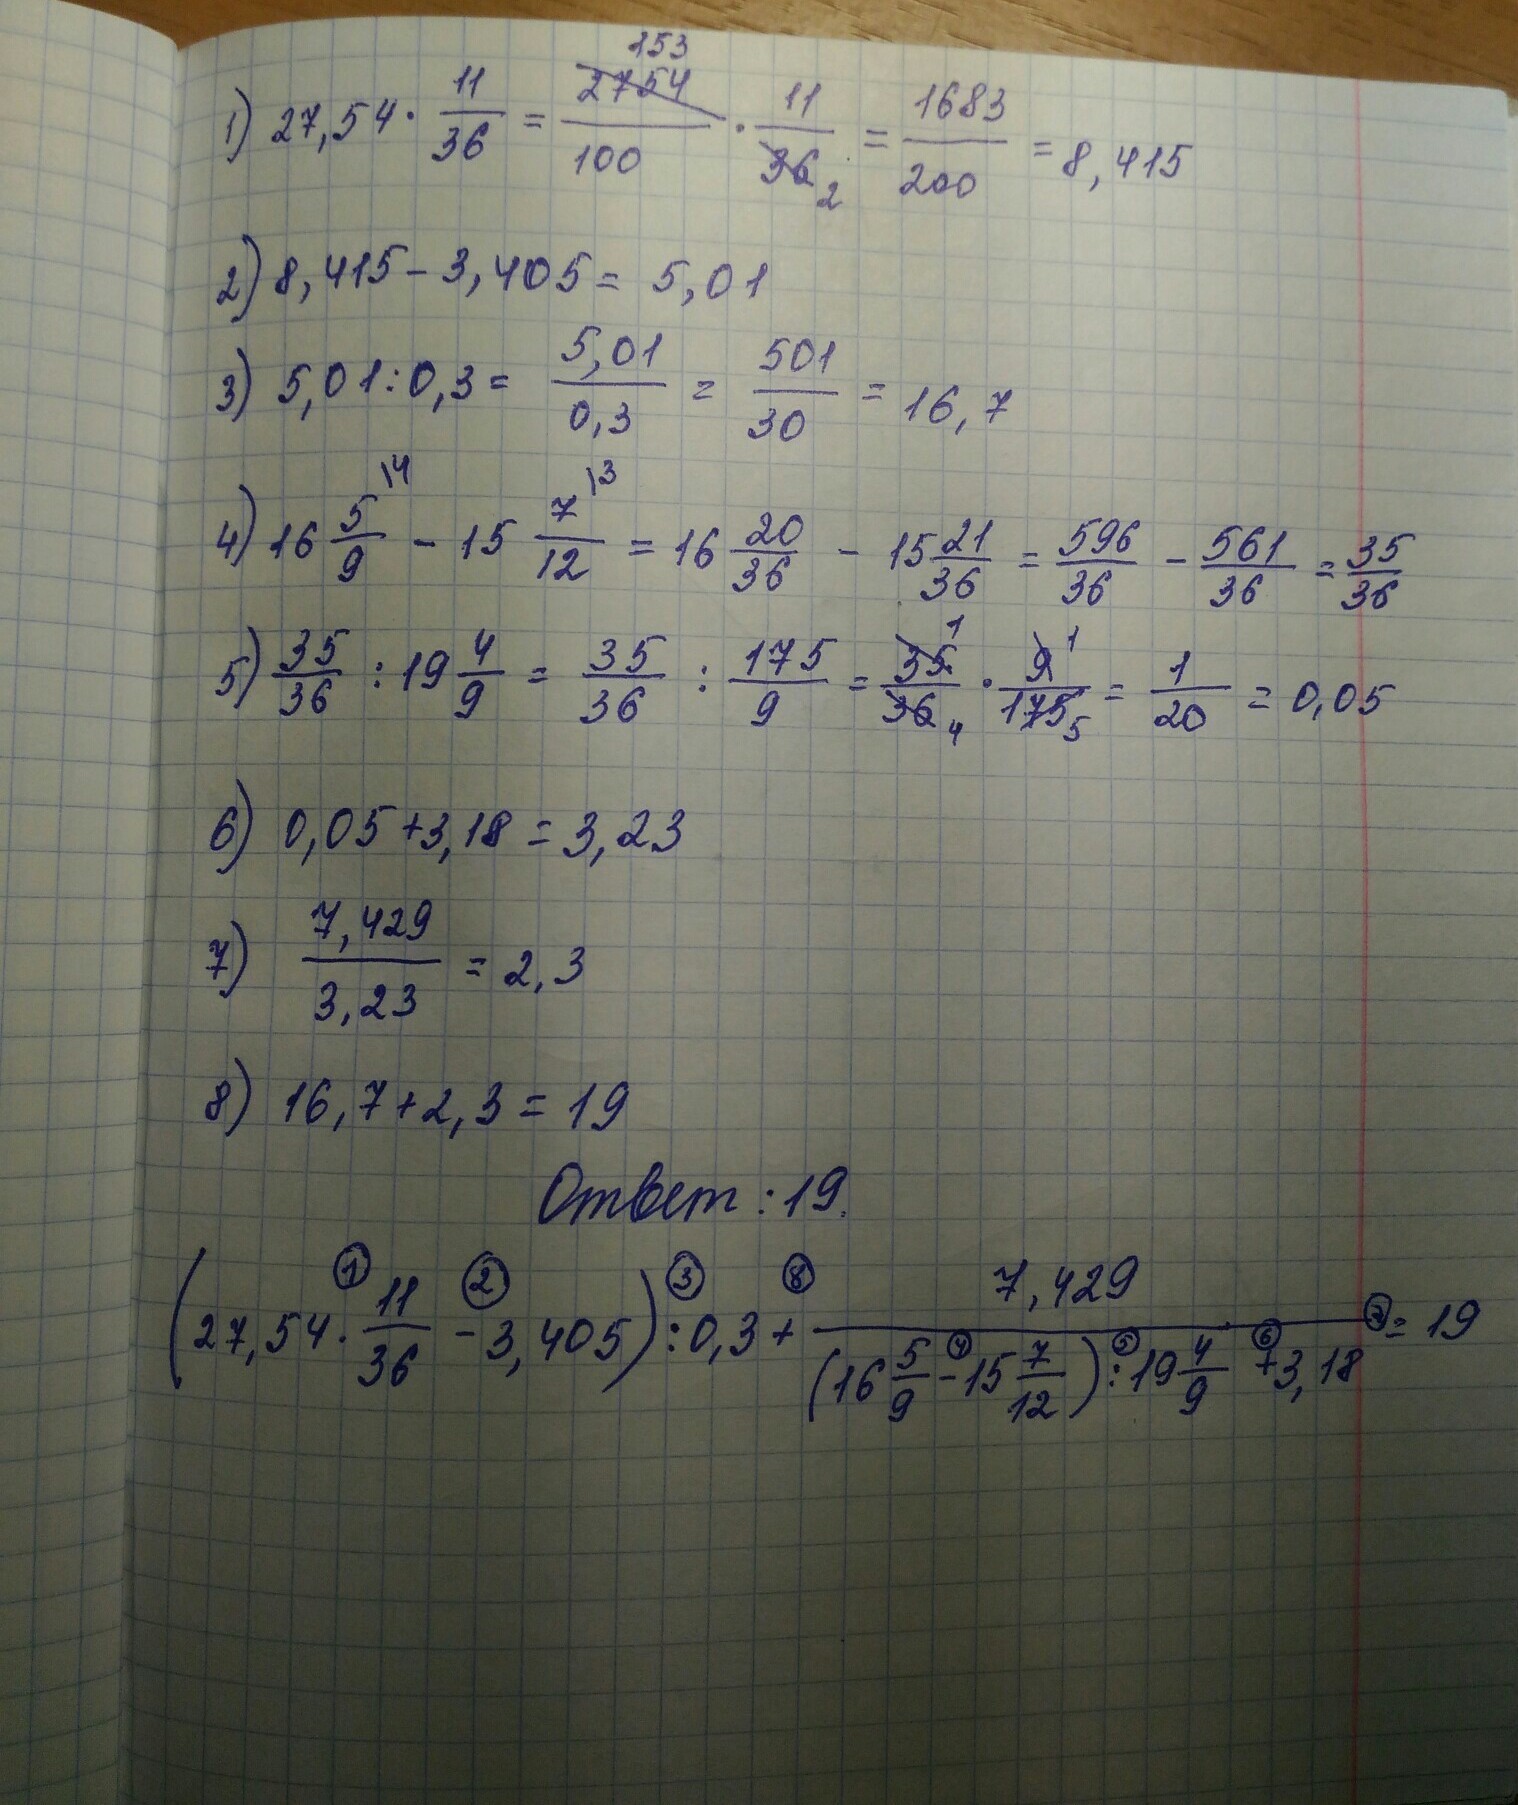 1) 27,54 · 11/36 = 2754/100 153 · 11/36 2 = 1683/200 = 8,415
2) 8,415 - 3,405 = 5,01
3) 5,01 : 0,3 = 5,01/0,3 = 501/30 = 16,7
4) 16 5/9 \4 - 15 7/12 \3 = 16 20/36 - 15 21/36 = 596/36 - 561/36 = 35/36
5) 35/36 : 19 4/9 = 35/36 : 175/9 = 35 1/36 4 · 9 1/175 5 = 1/20 = 0,05
6) 0,05 + 3,18 = 3,23
7) 7,429/3,23 = 2,3
8) 16,7 + 2,3 = 19
Ответ : 19.
(27,54 ·① 11/36 -② 3,405) :③ 0,3 +⑧ 7,429/((16 5/9 -④ 15 7/12) :⑤ 19 4/9 +⑥ 3,18) ⑦ = 19